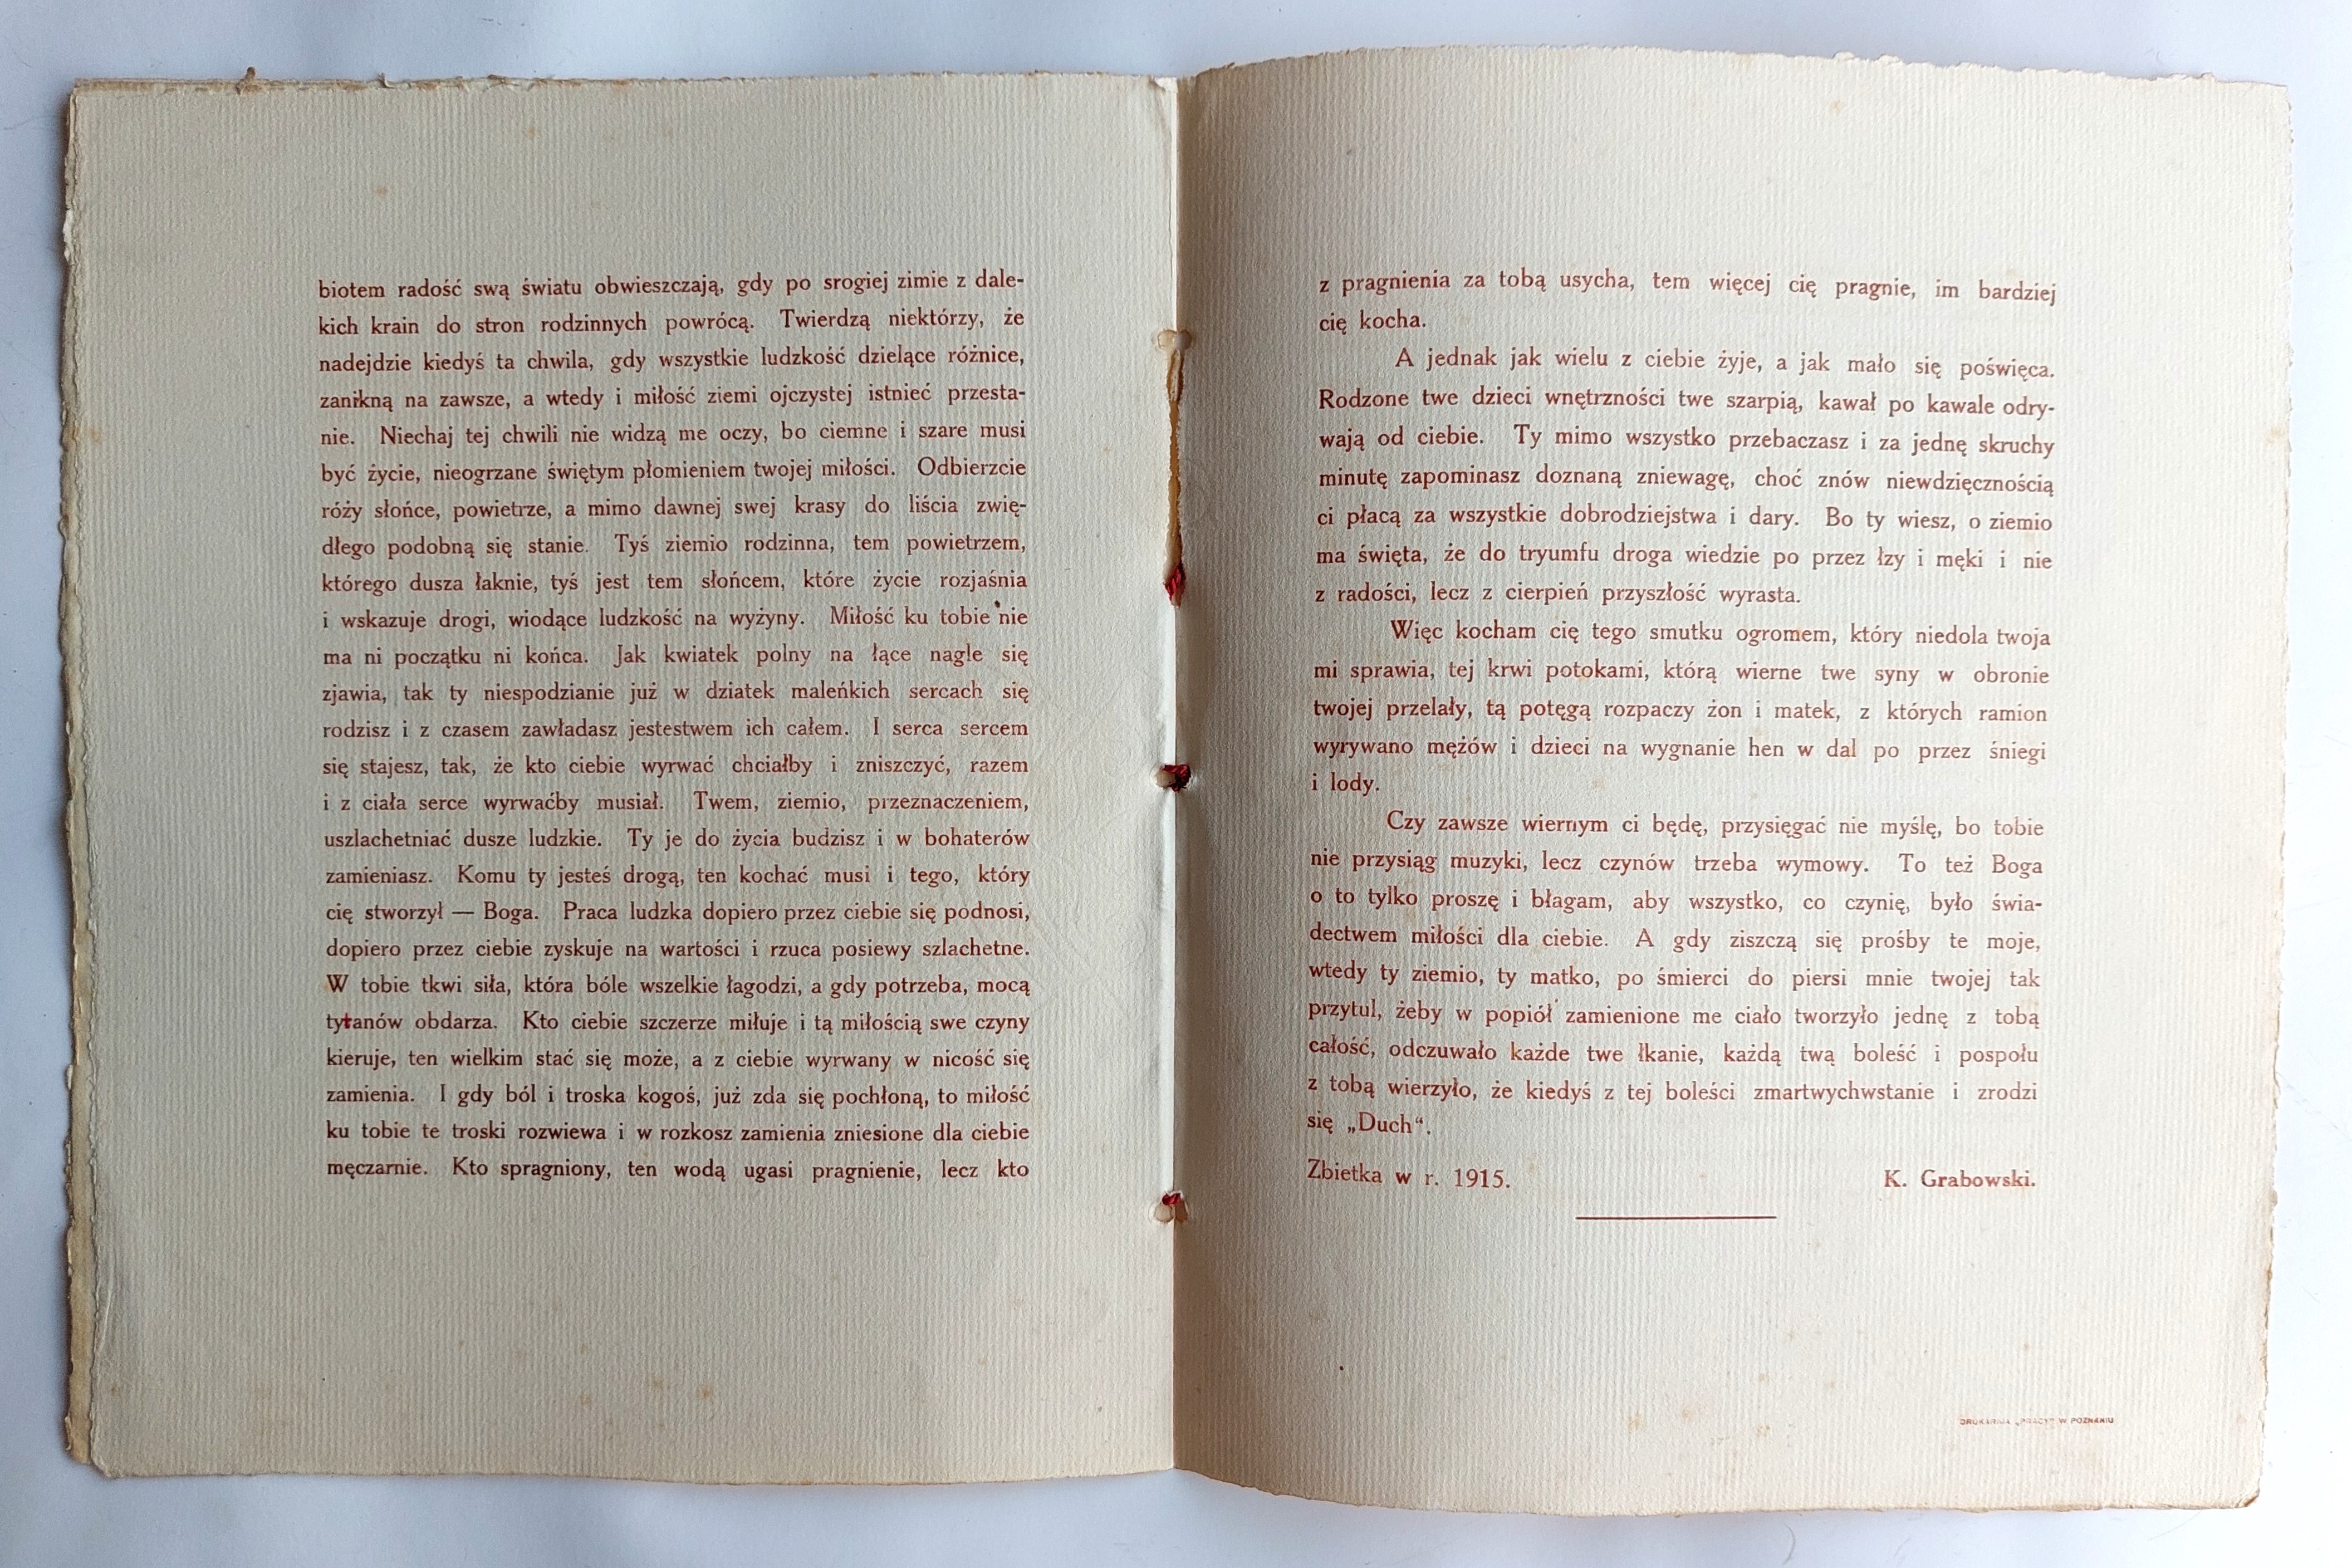 biotem radość swą światu obwieszczają, gdy po srogiej zimie z dale-
kich krain do stron rodzinnych powrócą. Twierdzą niektórzy, że
nadejdzie kiedyś ta chwila, gdy wszystkie ludzkość dzielące różnice,
zanikną na zawsze, a wtedy i miłość ziemi ojczystej istnieć przesta-
nie. Niechaj tej chwili nie widzą me oczy, bo ciemne i szare musi
być życie, nieogrzane świętym płomieniem twojej miłości. Odbierzcie
róży słońce, powietrze, a mimo dawnej swej krasy do liścia zwię-
dłego podobną się stanie. Tyś ziemio rodzinna, tem powietrzem,
którego dusza łaknie, tyś jest tem słońcem, które życie rozjaśnia
i wskazuje drogi, wiodące ludzkość na wyżyny. Miłość ku tobie nie
ma ni początku ni końca. Jak kwiatek polny na łące nagle się
zjawia, tak ty niespodzianie już w dziatek maleńkich sercach się
rodzisz i z czasem zawładasz jestestwem ich całem. I serca sercem
się stajesz, tak, że kto ciebie wyrwać chciałby i zniszczyć, razem
i z ciała serce wyrwaćby musiał. Twem, ziemio, przeznaczeniem,
uszlachetniać dusze ludzkie. Ty je do życia budzisz i w bohaterów
zamieniasz. Komu ty jesteś drogą, ten kochać musi i tego, który
cię stworzył — Boga. Praca ludzka dopiero przez ciebie się podnosi,
dopiero przez ciebie zyskuje na wartości i rzuca posiewy szlachetne.
W tobie tkwi siła, która bóle wszelkie łagodzi, a gdy potrzeba, mocą
tytanów obdarza. Kto ciebie szczerze miłuje i tą miłością swe czyny
kieruje, ten wielkim stać się może, a z ciebie wyrwany w nicość się
zamienia. I gdy ból i troska kogoś, już zda się pochłoną, to miłość
ku tobie te troski rozwiewa i w rozkosz zamienia zniesione dla ciebie
męczarnie. Kto spragniony, ten wodą ugasi pragnienie, lecz kto
z pragnienia za tobą usycha, tem więcej cię pragnie, im bardziej
cię kocha.
A jednak jak wielu z ciebie żyje, a jak mało się poświęca.
Rodzone twe dzieci wnętrzności twe szarpią, kawał po kawale odry-
wają od ciebie. Ty mimo wszystko przebaczasz i za jednę skruchy
minutę zapominasz doznaną zniewagę, choć znów niewdzięcznością
ci płacą za wszystkie dobrodziejstwa i dary. Bo ty wiesz, o ziemio
ma święta, że do tryumfu droga wiedzie po przez łzy i męki i nie
z radości, lecz z cierpień przyszłość wyrasta.
Więc kocham cię tego smutku ogromem, który niedola twoja
mi sprawia, tej krwi potokami, którą wierne twe syny w obronie
twojej przelały, tą potęgą rozpaczy żon i matek, z których ramion
wyrywano mężów i dzieci na wygnanie hen w dal po przez śniegi
i lody.
Czy zawsze wiernym ci będę, przysięgać nie myślę, bo tobie
nie przysiąg muzyki, lecz czynów trzeba wymowy. To też Boga
o to tylko proszę i błagam, aby wszystko, co czynię, było świa-
dectwem miłości dla ciebie. A gdy ziszczą się prośby te moje,
wtedy ty ziemio, ty matko, po śmierci do piersi mnie twojej tak
przytul, żeby w popiół zamienione me ciało tworzyło jednę z tobą
całość, odczuwało każde twe łkanie, każdą twą boleść i pospołu
z tobą wierzyło, że kiedyś z tej boleści zmartwychwstanie i zrodzi
się „Duch“.
Zbietka w r. 1915. K. Grabowski.
DRUKARNIA „PRACY“ W POZNANIU